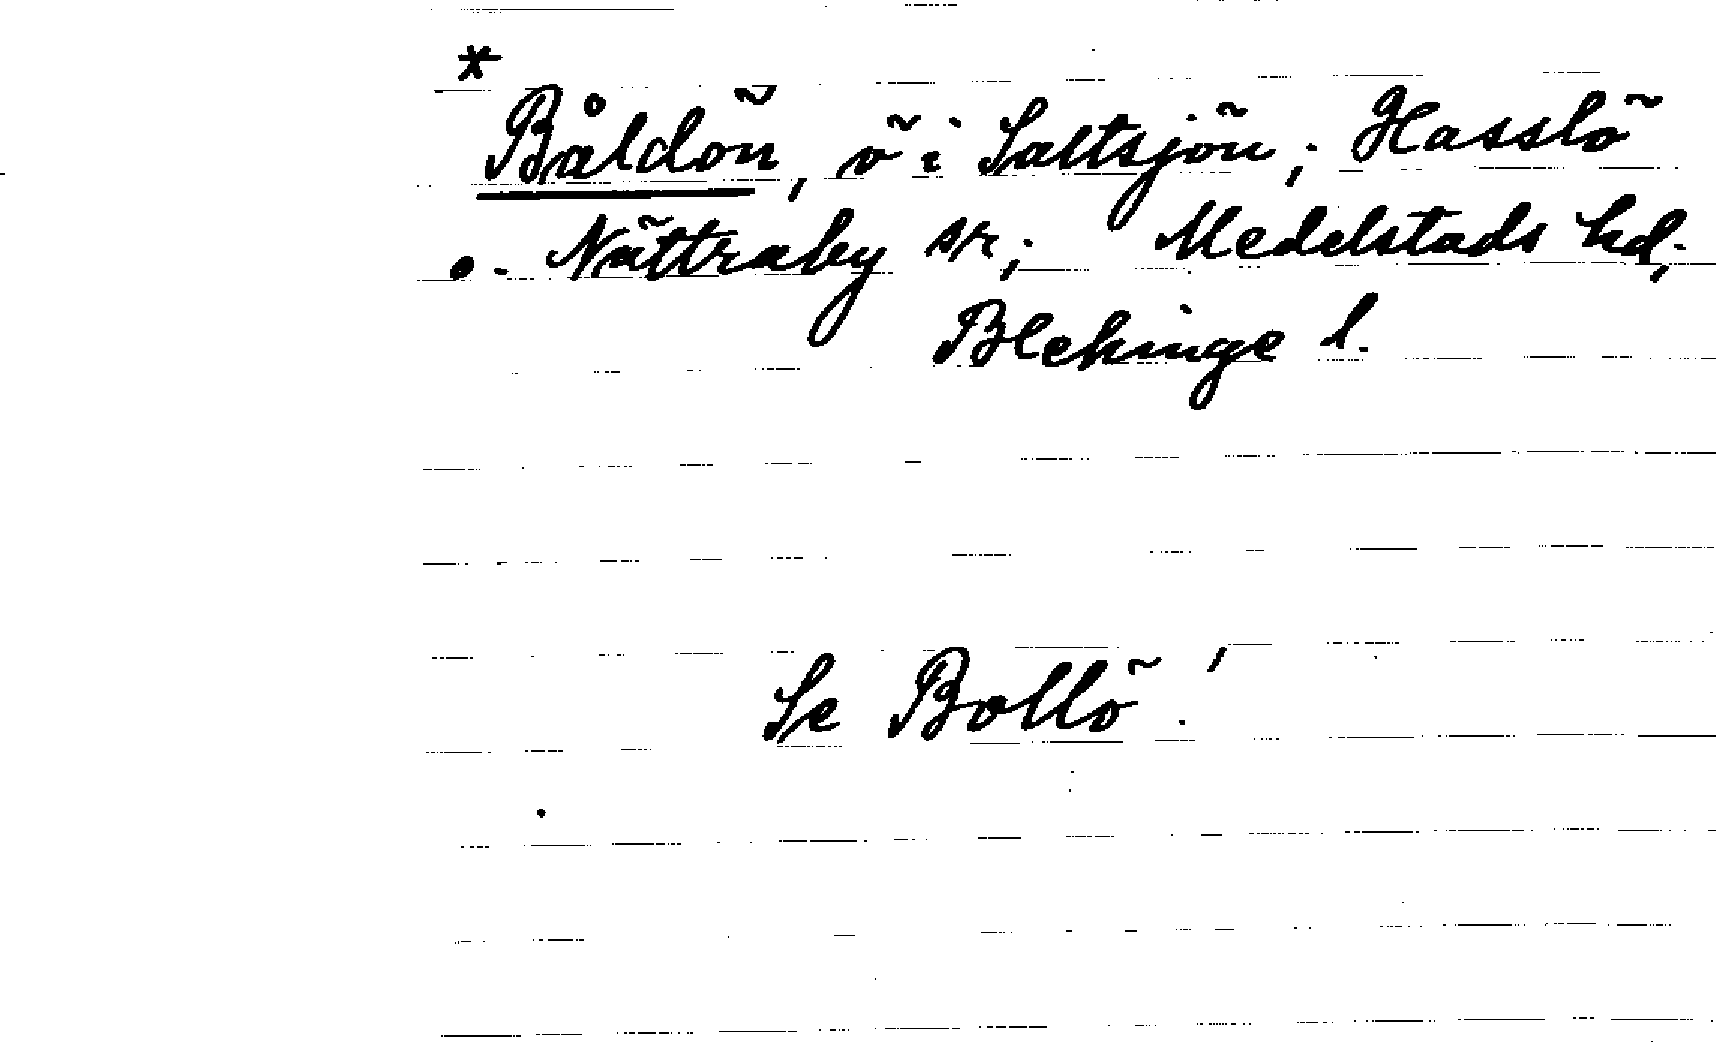 *
Båldön, ö i Saltsjön; Hasslö
o. Nättraby sn; Medelstads hd,
Blekinge l.
Se Bollö!